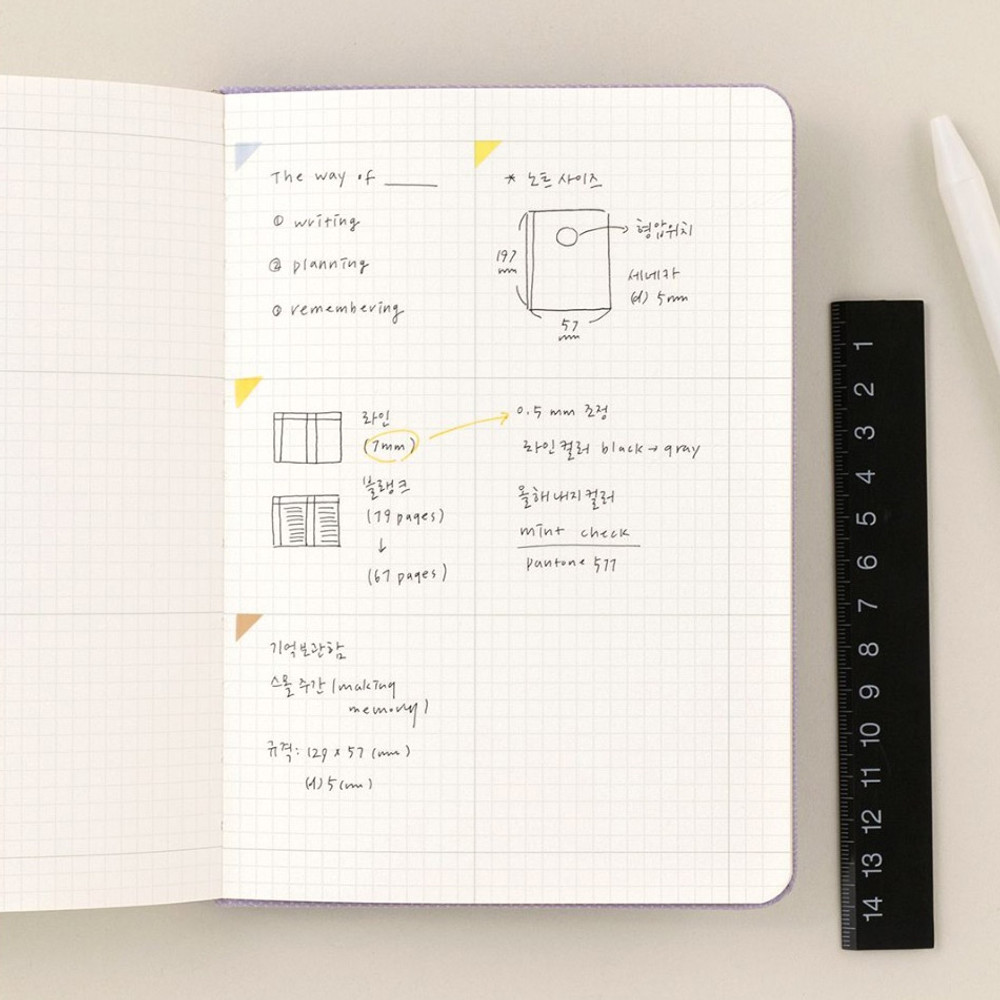 The way of ______
① writing
② planning
③ remembering
* 노트 사이즈
형압위치
197
mm
세네카
(d) 5mm
57
mm
라인
(7mm)
블랭크
(79 pages)
↓
(67 pages)
0.5 mm 조정
라인컬러 black → gray
올해 내지컬러
mint check
pantone 577
기억보관함
스몰 주간 (making
memory)
규격: 129 x 57 (mm)
(d) 5 (mm)
1
2
3
4
5
6
7
8
9
10
11
12
13
14